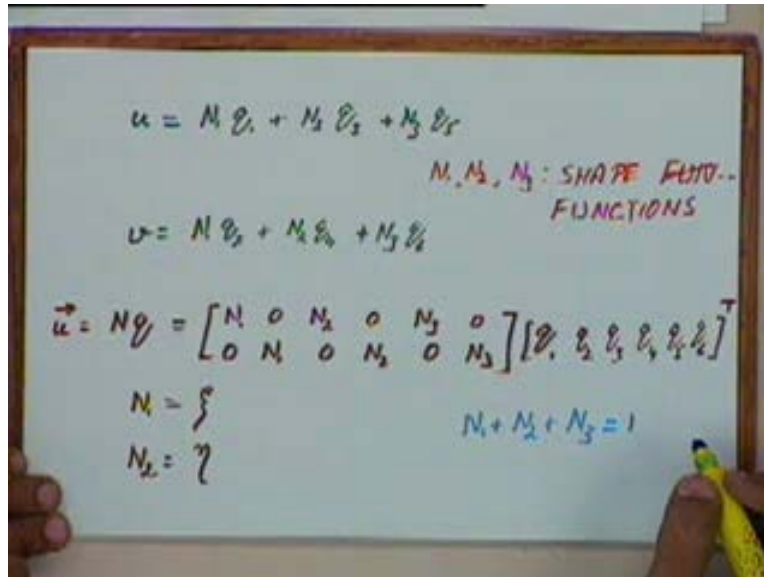 u = N₁ q₁ + N₂ q₃ + N₃ q₅
N₁, N₂, N₃ : SHAPE FUNO..
FUNCTIONS
v = N₁ q₂ + N₂ q₄ + N₃ q₆
u⃗ = Nq = [N₁ 0 N₂ 0 N₃ 0
0 N₁ 0 N₂ 0 N₃] [q₁ q₂ q₃ q₄ q₅ q₆]ᵀ
N₁ = ξ
N₁ + N₂ + N₃ = 1
N₂ = η